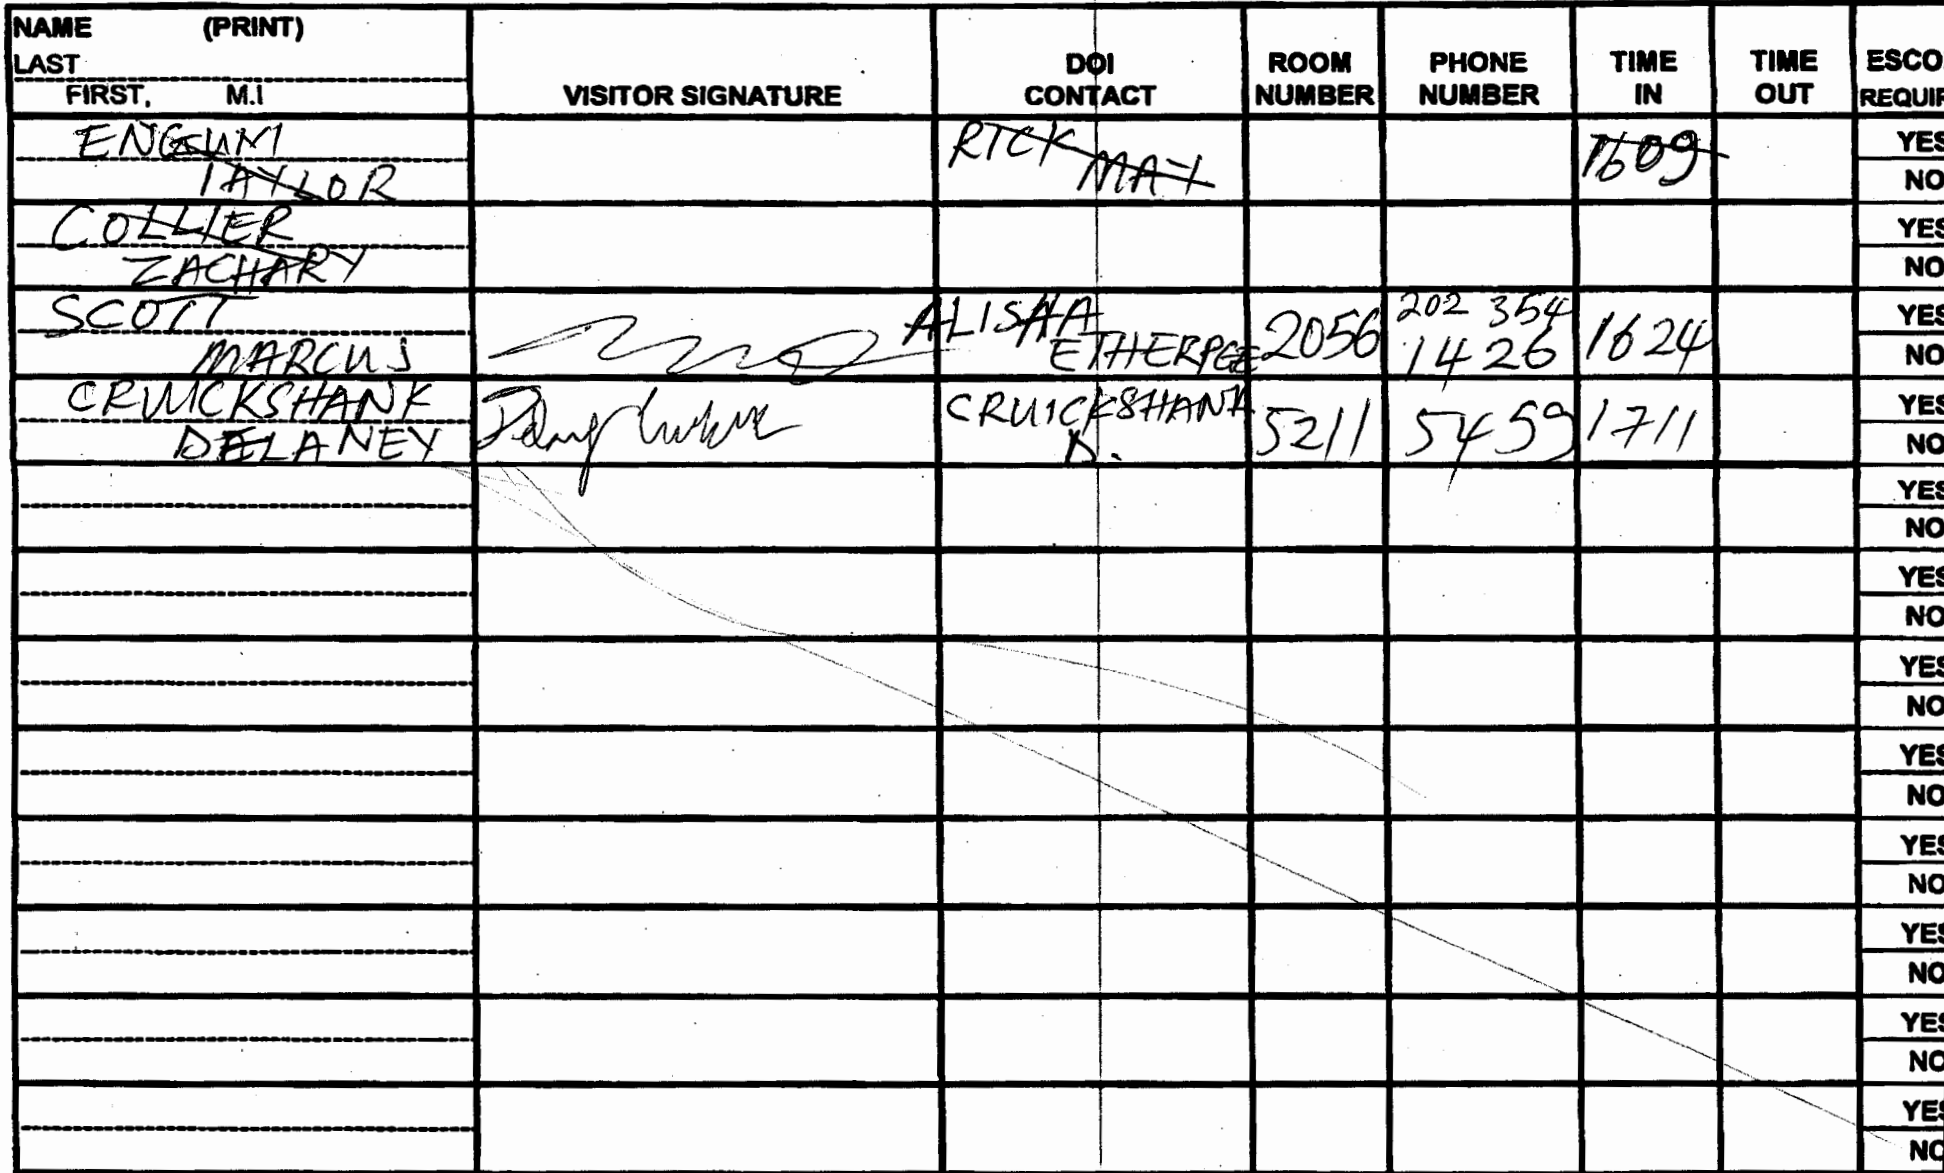 NAME (PRINT)
LAST
FIRST, M.I
VISITOR SIGNATURE
DOI CONTACT
ROOM NUMBER
PHONE NUMBER
TIME IN
TIME OUT
ESCO
REQUIR
TAYLOR
RICK MAY
1609
YES
NO
COLLIER
ZACHARY
YES
NO
SCOTT
MARCUS
ALISHA
2056
202 354
1426
1624
YES
NO
CRUICKSHANK
DELANEY
CRUICKSHANK
D.
5211
5459
1711
YES
NO
YES
NO
YES
NO
YES
NO
YES
NO
YES
NO
YES
NO
YES
NO
YES
NO